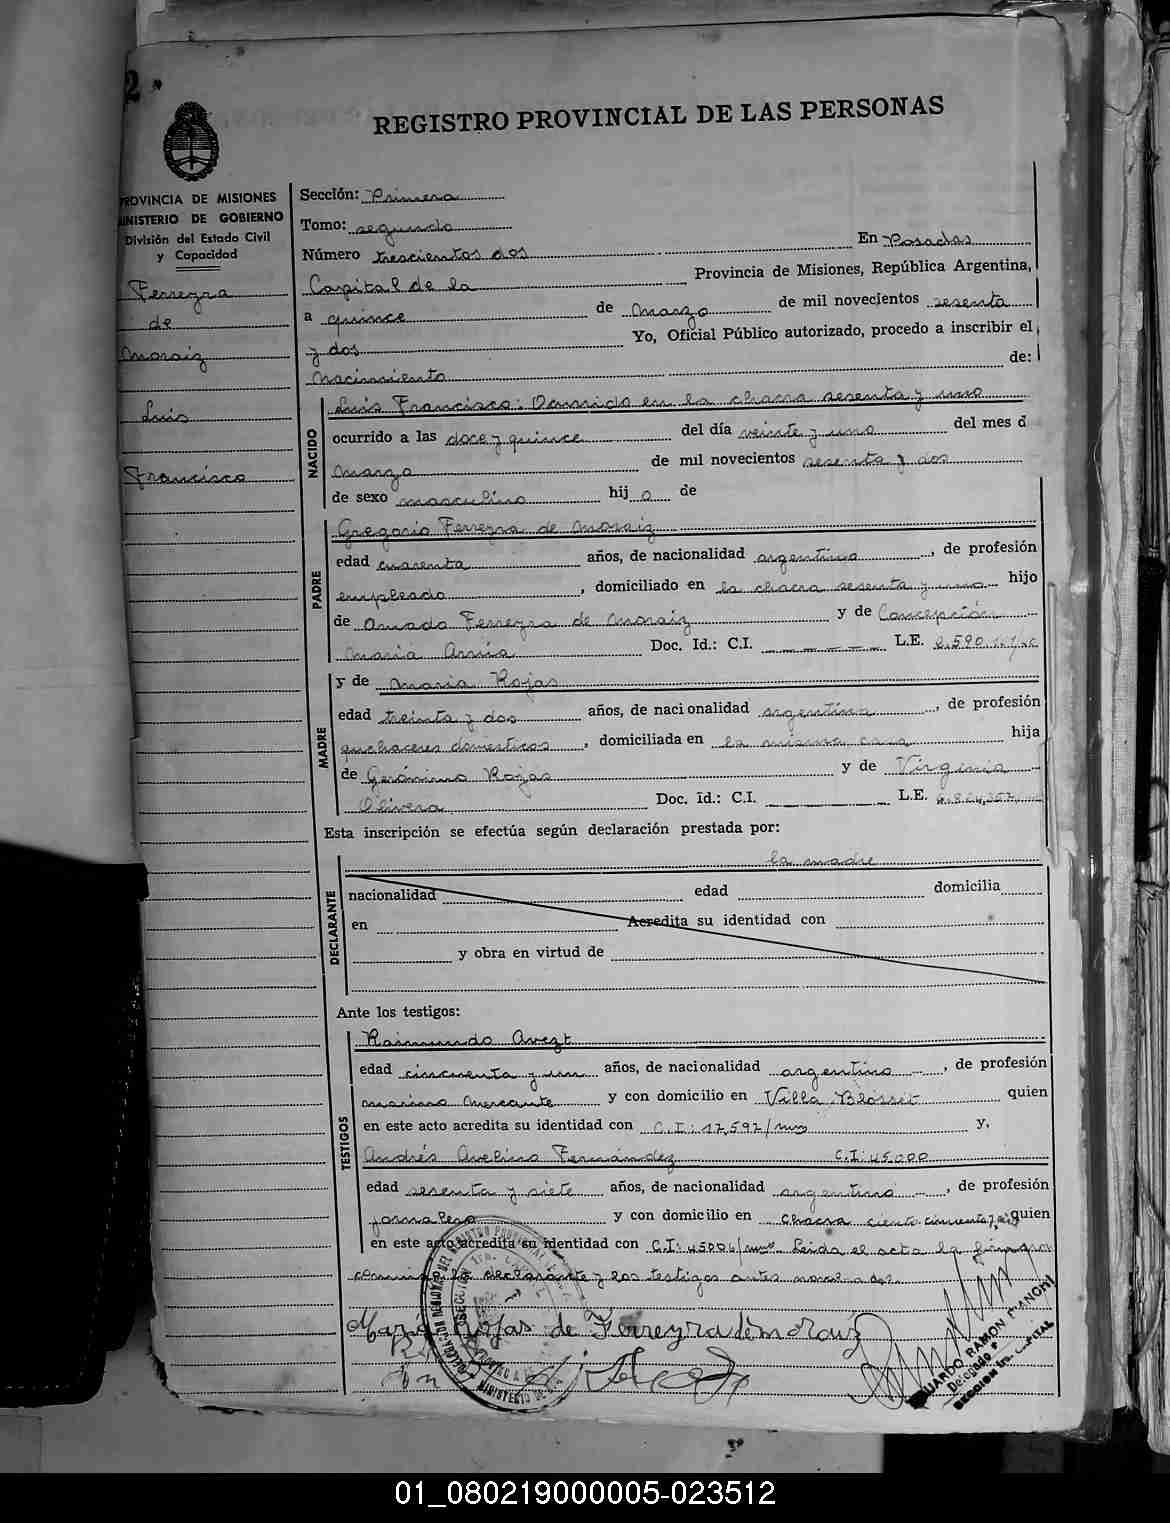 REGISTRO PROVINCIAL DE LAS PERSONAS
PROVINCIA DE MISIONES
MINISTERIO DE GOBIERNO
División del Estado Civil
y Capacidad
Ferreyra
de
Moraiz
Luis
Francisco
Sección: Primera
Tomo: segundo
Número trescientos dos En Posadas
Capital de la Provincia de Misiones, República Argentina,
a quince de Marzo de mil novecientos sesenta
y dos Yo, Oficial Público autorizado, procedo a inscribir el
Nacimiento de:
NACIDO
Luis Francisco: Ocurrido en la chacra sesenta y uno
ocurrido a las doce y quince del día veinte y uno del mes d
Marzo de mil novecientos sesenta y dos
de sexo masculino hij o de
PADRE
Gregorio Ferreyra de Moraiz
edad cuarenta años, de nacionalidad argentina, de profesión
empleado, domiciliado en la chacra sesenta y uno hijo
de Amado Ferreyra de Moraiz y de Concepción
María Doc. Id.: C.I. L.E.
MADRE
y de María Rojas
edad treinta y dos años, de nacionalidad argentina, de profesión
quehaceres domesticos, domiciliada en la misma casa hija
de Gerónimo Rojas y de Virginia
Olivera Doc. Id.: C.I. L.E.
Esta inscripción se efectúa según declaración prestada por:
DECLARANTE
la madre
nacionalidad edad domicilia
en Acredita su identidad con
y obra en virtud de
Ante los testigos:
TESTIGOS
Raimundo Avezt
edad cincuenta y un años, de nacionalidad argentino, de profesión
marino mercante y con domicilio en Villa Blosset quien
en este acto acredita su identidad con C.I: 17,597/mns y,
Andrés Avelino Fernández C.I: 45.000
edad sesenta y siete años, de nacionalidad argentino, de profesión
jornalero y con domicilio en chacra ciento cincuenta y quien
en este acto acredita su identidad con C.I: 45006/mns Leida el acta la firman
conmigo la declarante y los testigos antes nombrados.
María Rojas de Ferreyra de moraiz
EDUARDO RAMON
Delegado
SECCION 1ra. CAPITAL
01_080219000005-023512